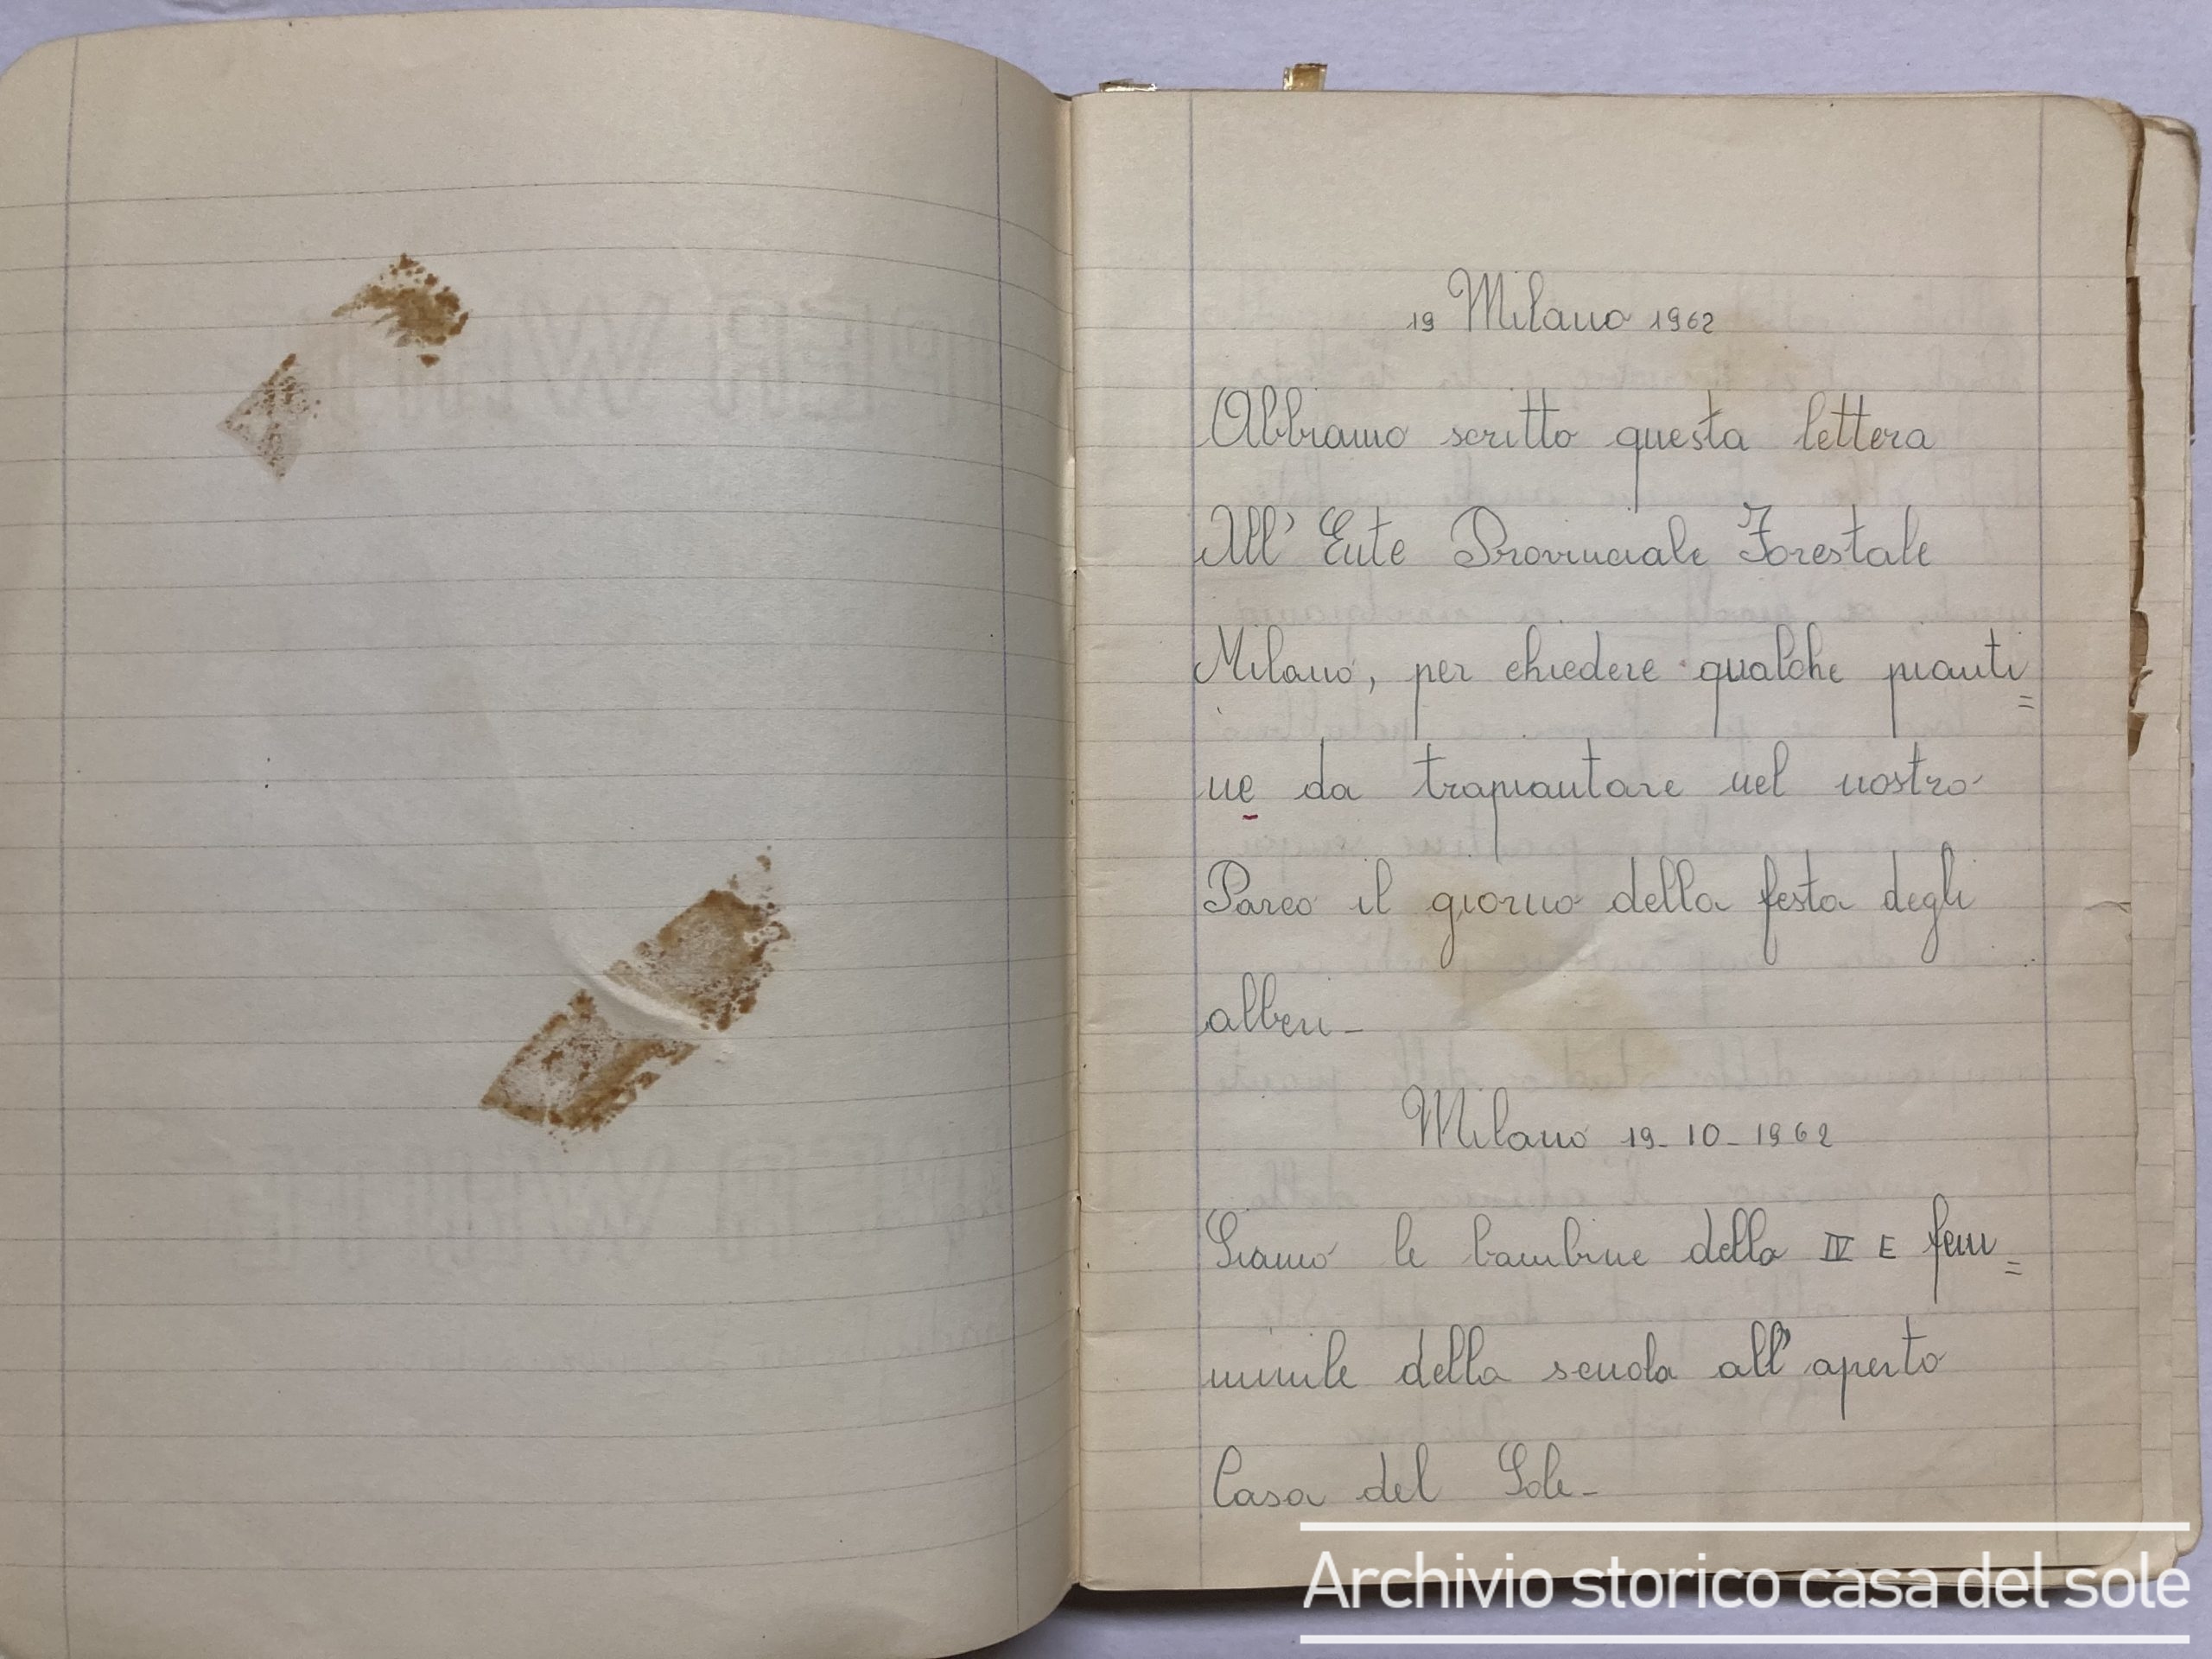 19 Milano 1962
Abbiamo scritto questa lettera
All' Ente Provinciale Forestale
Milano, per chiedere qualche pianti=
ne da trapiantare nel nostro
Parco il giorno della festa degli
alberi_
Milano 19_10_1962
Siamo le bambine della IV E fem=
minile della scuola all'aperto
Casa del Sole_
Archivio storico casa del sole